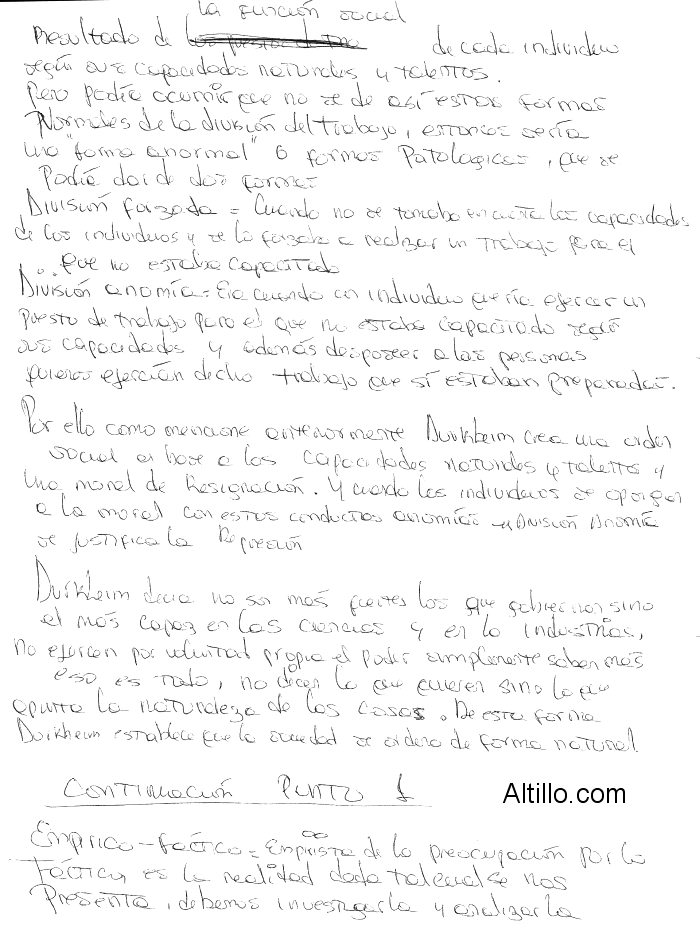 la función social
Resultado de los puestos de de cada individuo
según sus capacidades naturales y talentos.
Pero podía ocurrir que no se de así estas formas
Normales de la división del trabajo, entonces sería
una "forma anormal" o formas Patologicas, que se
Podía dar de dos formas
División forzada = Cuando no se tomaba en cuenta las capacidades
de los individuos y se lo forzaba a realizar un trabajo para el
que no estaba capacitado
División anomía = Era cuando un individuo quería ejercer un
puesto de trabajo para el que no estaba capacitado según
sus capacidades y además desposeer a las personas
quienes ejercían dicho trabajo que sí estaban preparadas.
Por ello como mencione anteriormente Durkheim crea una orden
social en base a las capacidades naturales y talento y
una moral de Resignación. Y cuando los individuos se oponían
a la moral con estas conductas anomías División Anomía
se justifica la Represión
Durkheim decia no son mas fuertes los que gobiernan sino
el más capaz en las ciencias y en la industrias,
no ejercen por voluntad propia el poder simplemente saben más
eso es todo, no dicen lo que quieren sino lo que
apunta la naturaleza de las cosas. De esta forma
Durkheim establece que la sociedad se ordena de forma natural
Continuación Punto 1
Altillo.com
Empirico-factico = Empirista de la preocupación por lo
fáctico, es la realidad dada tal cual se nos
Presenta, debemos investigarla y analizarla